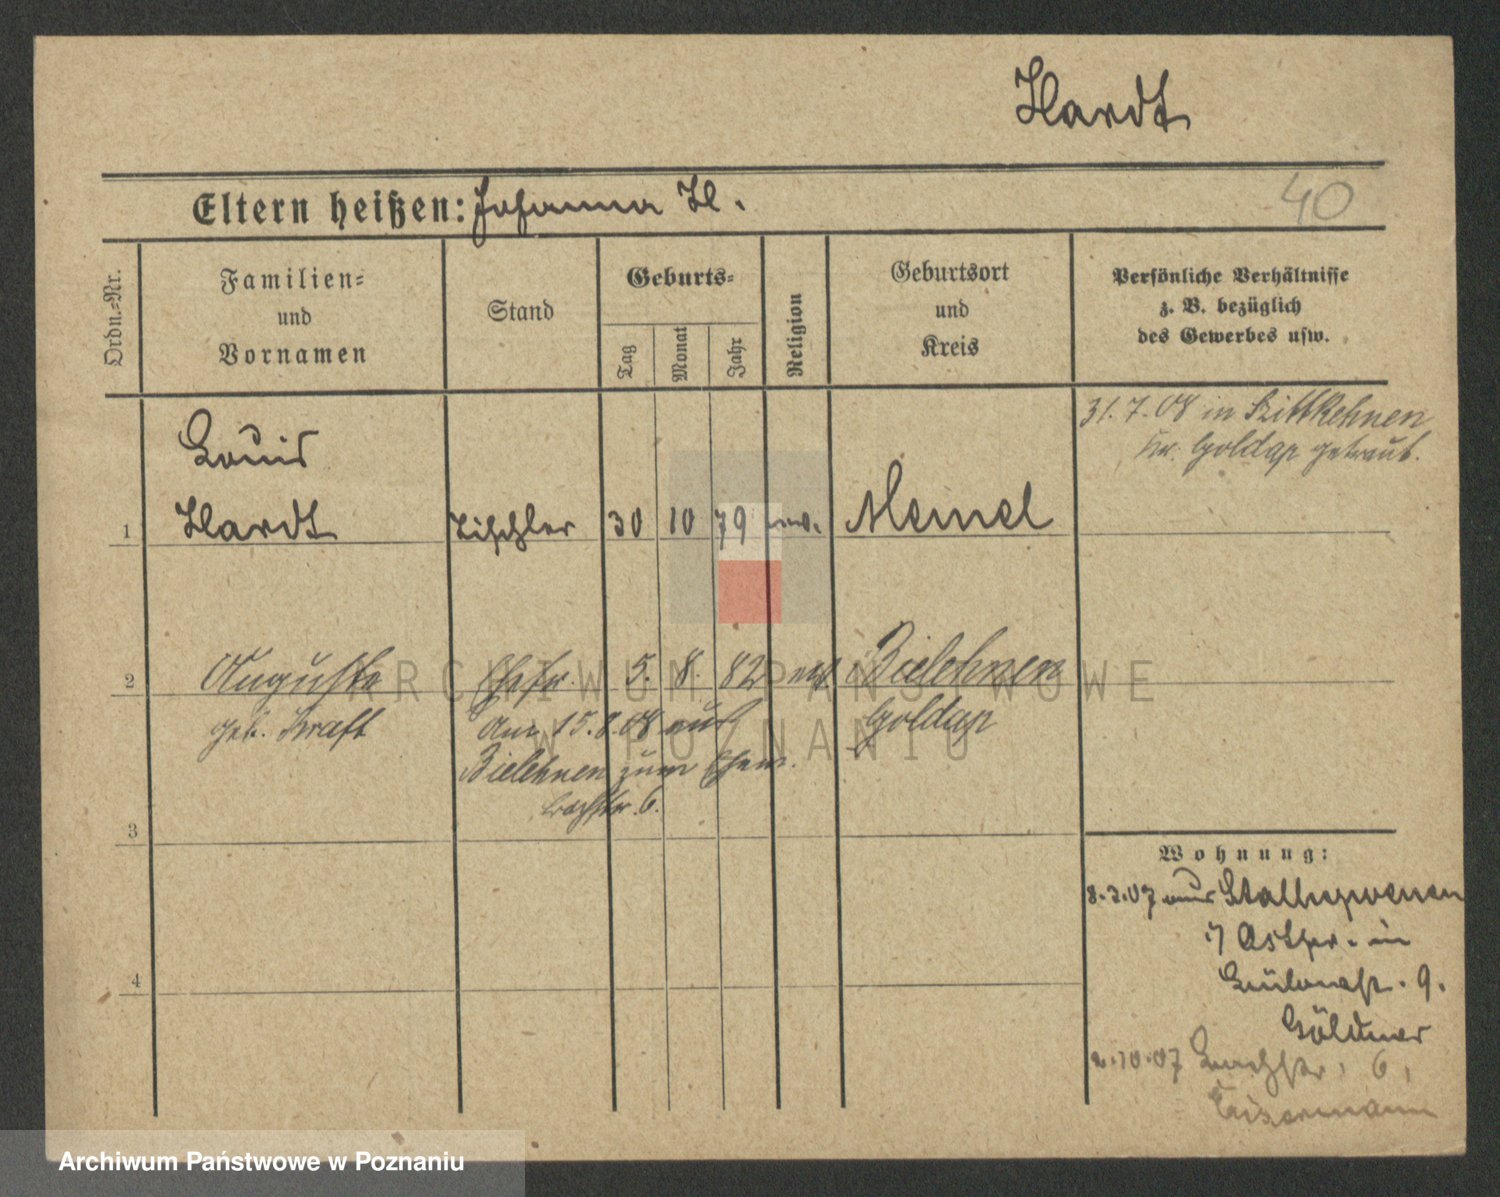 Hardt
Eltern heißen: Johanna H.
40
Ordn.-Nr.
Familien-
und
Vornamen
Stand
Geburts-
Tag
Monat
Jahr
Religion
Geburtsort
und
Kreis
Persönliche Verhältnisse
z. B. bezüglich
des Gewerbes usw.
31.7.08 in Szittkehnen
Kr. Goldap getraut.
Louis
1 Hardt Tischler 30 10 79 ev. Memel
2 Auguste Ehefr. 5. 8. 82 ev. Bielehnen
geb. Kraft Am 15.8.08 aus Goldap
Bielehnen zum Ehem.
Bachstr. 6.
3
Wohnung:
8.3.07 aus
Ostpr. in
9.
4
Göldner
2.10.07 Bachstr. 6,
ARCHIWUM PAŃSTWOWE
W POZNANIU
Archiwum Państwowe w Poznaniu